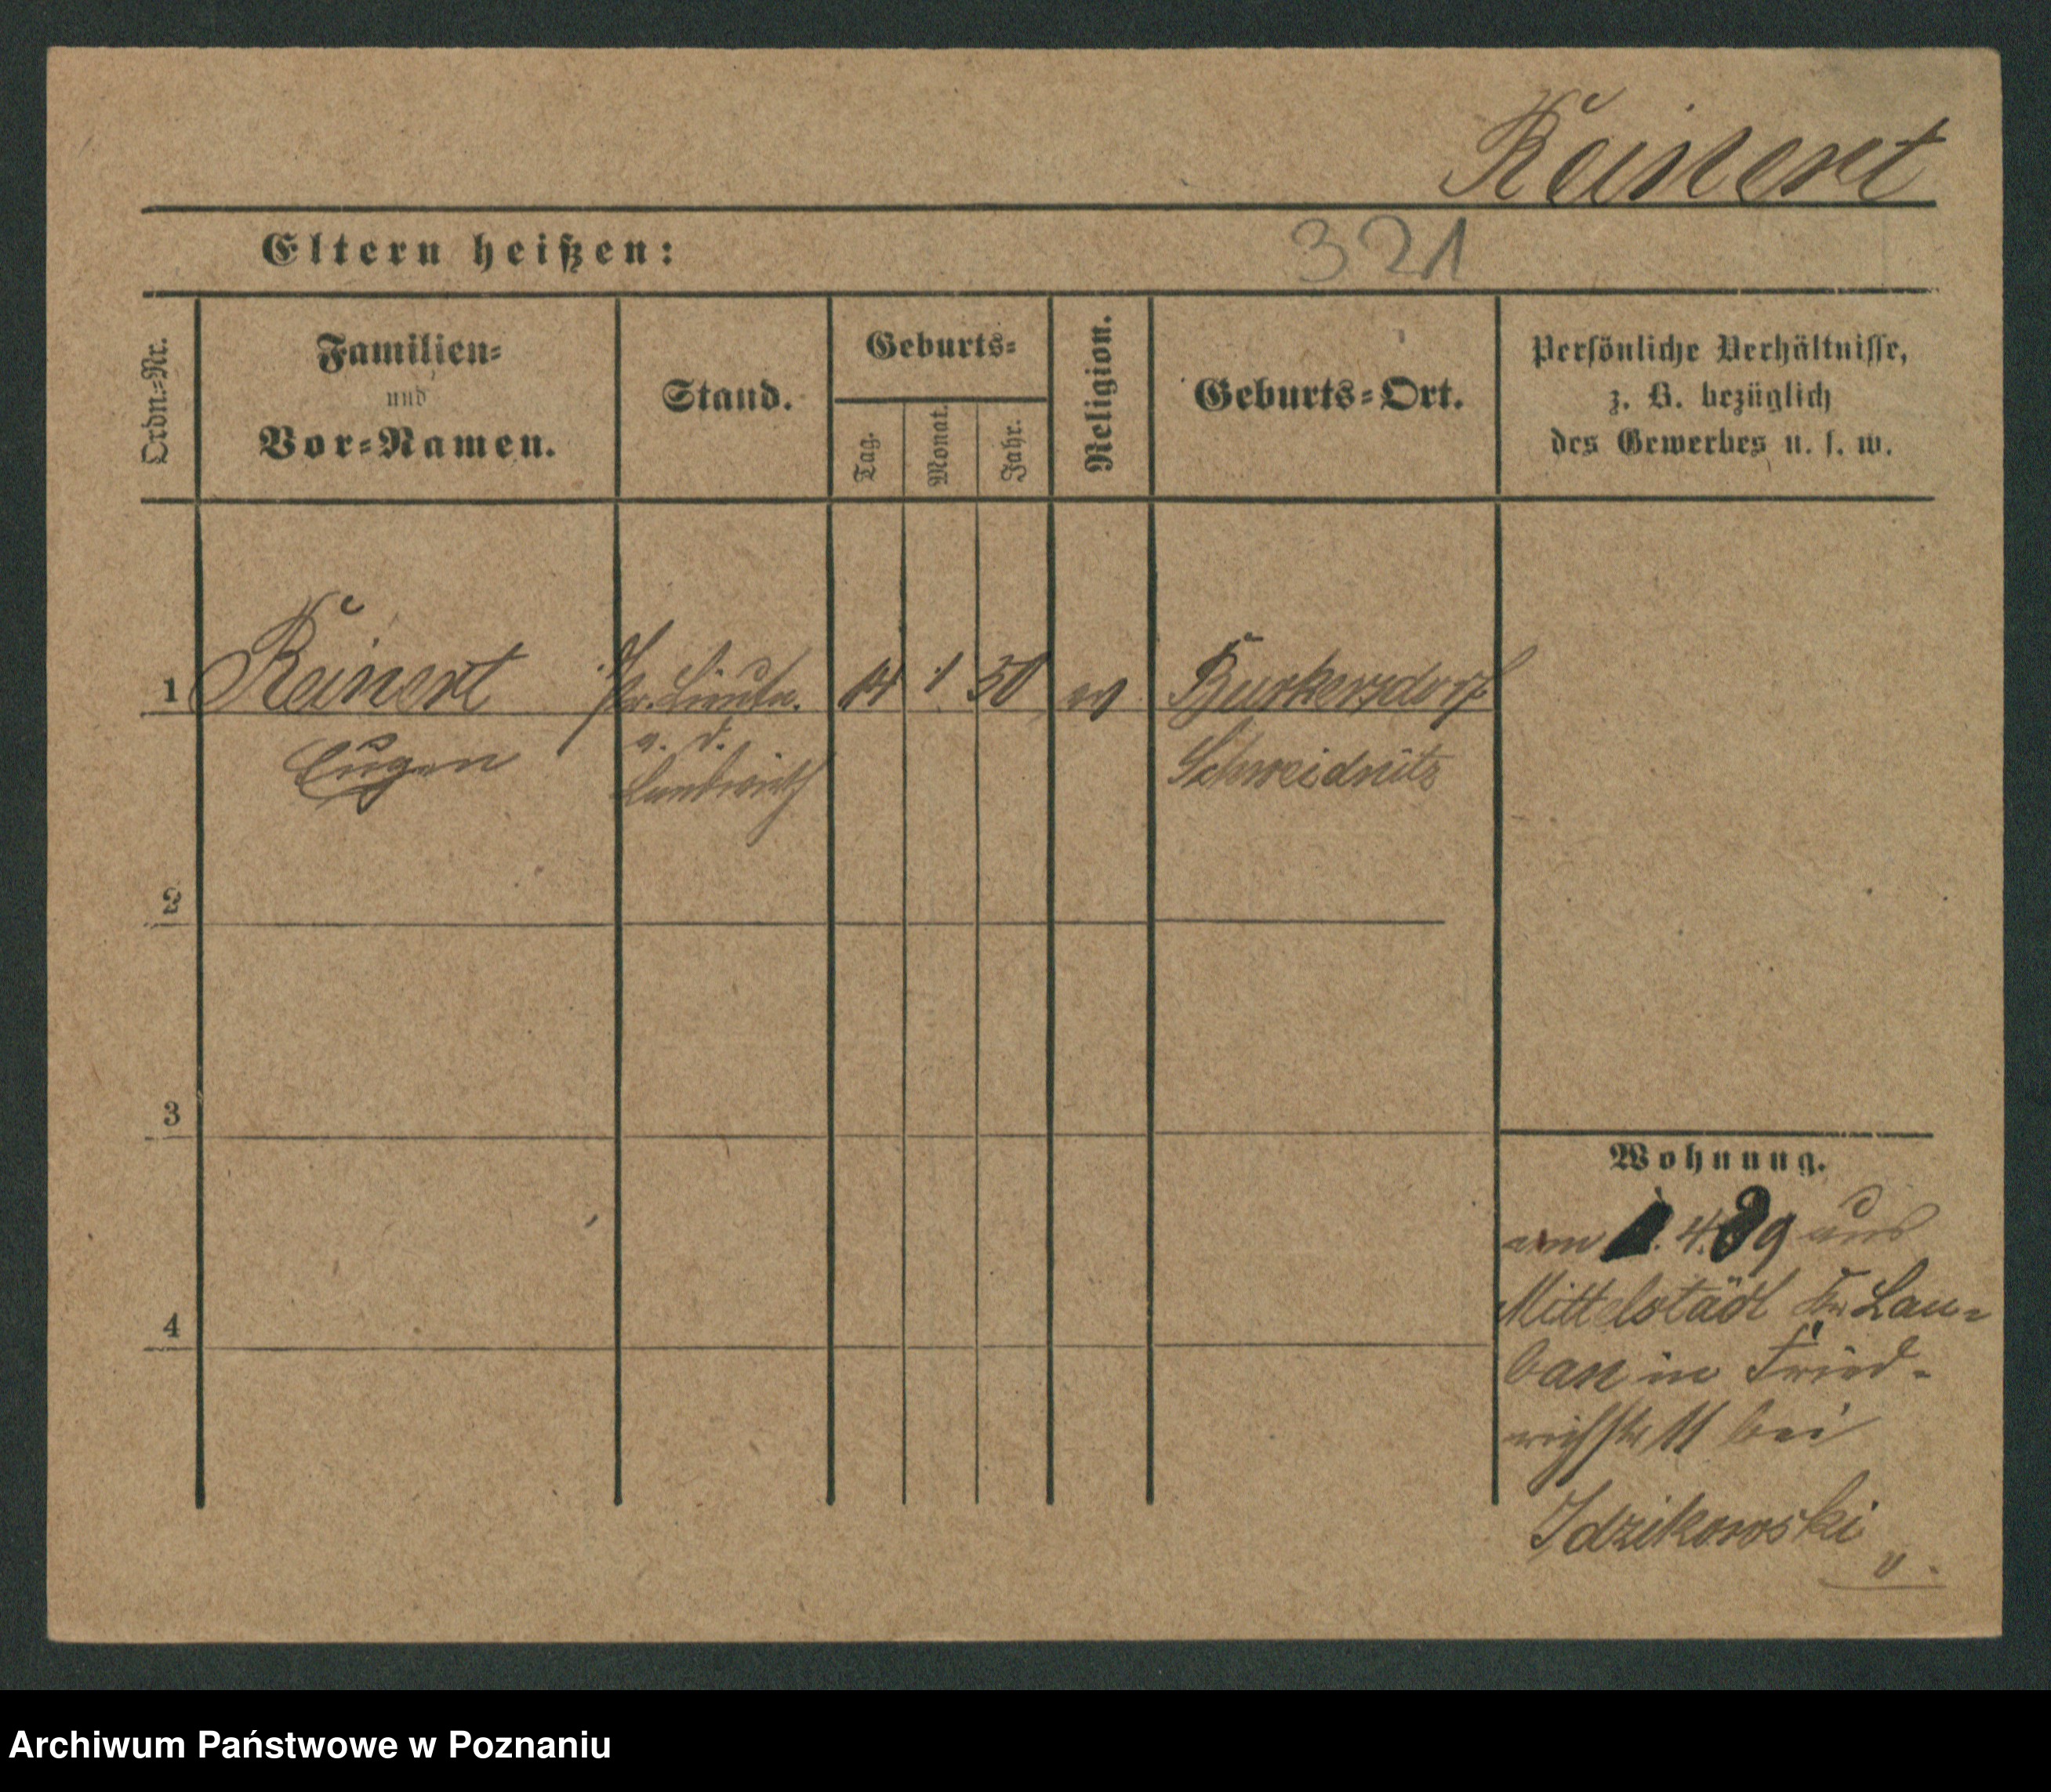 Reinert
Eltern heißen:
321
Ordn.=Nr.
Familien=
und
Vor=Namen.
Stand.
Geburts=
Tag.
Monat.
Jahr.
Religion.
Geburts=Ort.
Persönliche Verhältnisse,
z. B. bezüglich
des Gewerbes u. s. w.
1 Reinert Pr. Lieutn. 14 1 50 ev Burkersdorf
Eugen a. D. Schweidnitz
Landwirth
2
3
4
Wohnung.
am 4. 89 aus
Mittelstädt Kr Lau=
ban in Fried=
richstr 11 bei
Idzikowski
Archiwum Państwowe w Poznaniu